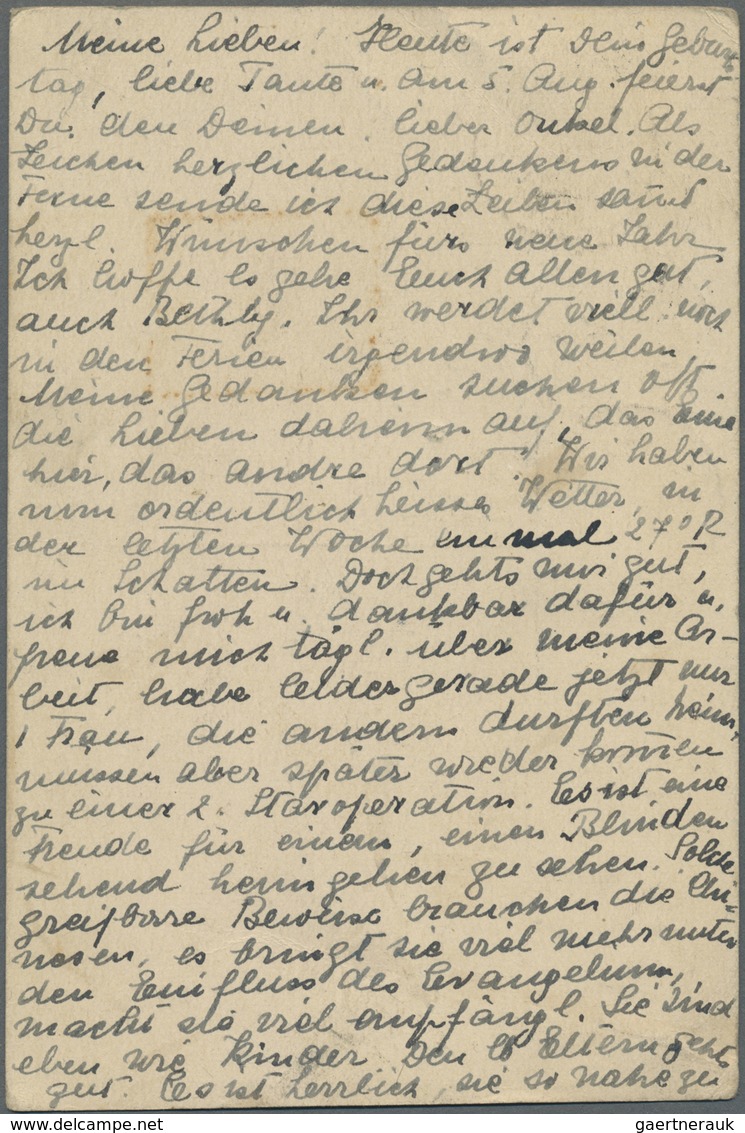 Meine Lieben! Heute ist Dein Geburts
tag, liebe Tante u. am 5. Aug. feierst
Du den Deinen, lieber Onkel. Als
Zeichen herzlichen Gedenkens in der
Ferne sende ich diese Zeilen samt
herzl. Wünschen fürs neue Jahr
Ich hoffe es gehe Euch allen gut,
auch Bethly. Ihr werdet viell. noch
in den Ferien irgendwo weilen.
Meine Gedanken suchen oft
die Lieben daheim auf, das eine
hier, das andre dort. Wir haben
nun ordentlich heisses Wetter, in
der letzten Woche einmal 27° R
im Schatten. Doch gehts mir gut,
ich bin froh u. dankbar dafür u.
freue mich tägl. über meine Ar-
beit, habe leider gerade jetzt nur
1 Frau, die andern durften heim,
müssen aber später wieder kommen
zu einer 2. Staroperation. Es ist eine
Freude für einem, einen Blinden
sehend heimgehen zu sehen. Solche
greifbare Beweise brauchen die Chi-
nesen, es bringt sie viel mehr unter
den Einfluss des Evangeliums,
macht sie viel empfängl. Sie sind
eben wie Kinder Den lb Eltern gehts
gut. Es ist herrlich, sie so nahe zu
gaertnerauk